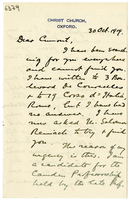 6339
CHRIST CHURCH,
OXFORD.
30 Oct. 1919.
Dear Cumont,
I have been send
ing for you everywhere
and cannot find you.
I have written to 3 Bou
levard de Courcelles
& to 19 Corso d'Italia
Rome, but I have had
no answer. I have
now asked M. Salomon
Reinach to try & find
you.
The reason of my
urgency is this. I am
a candidate for the
Camden Professorship
held by the late Prof.